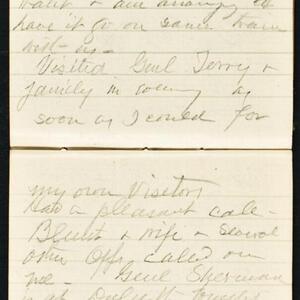 want & am arranging to
have it go on same train
with us –
Visited Genl Terry &
family in evening as
soon as I could for
my own Visitors
Had a pleasant call
Blunt & wife & Several
other Offs called on
me – Genl Sherman
is at Duluth tonight